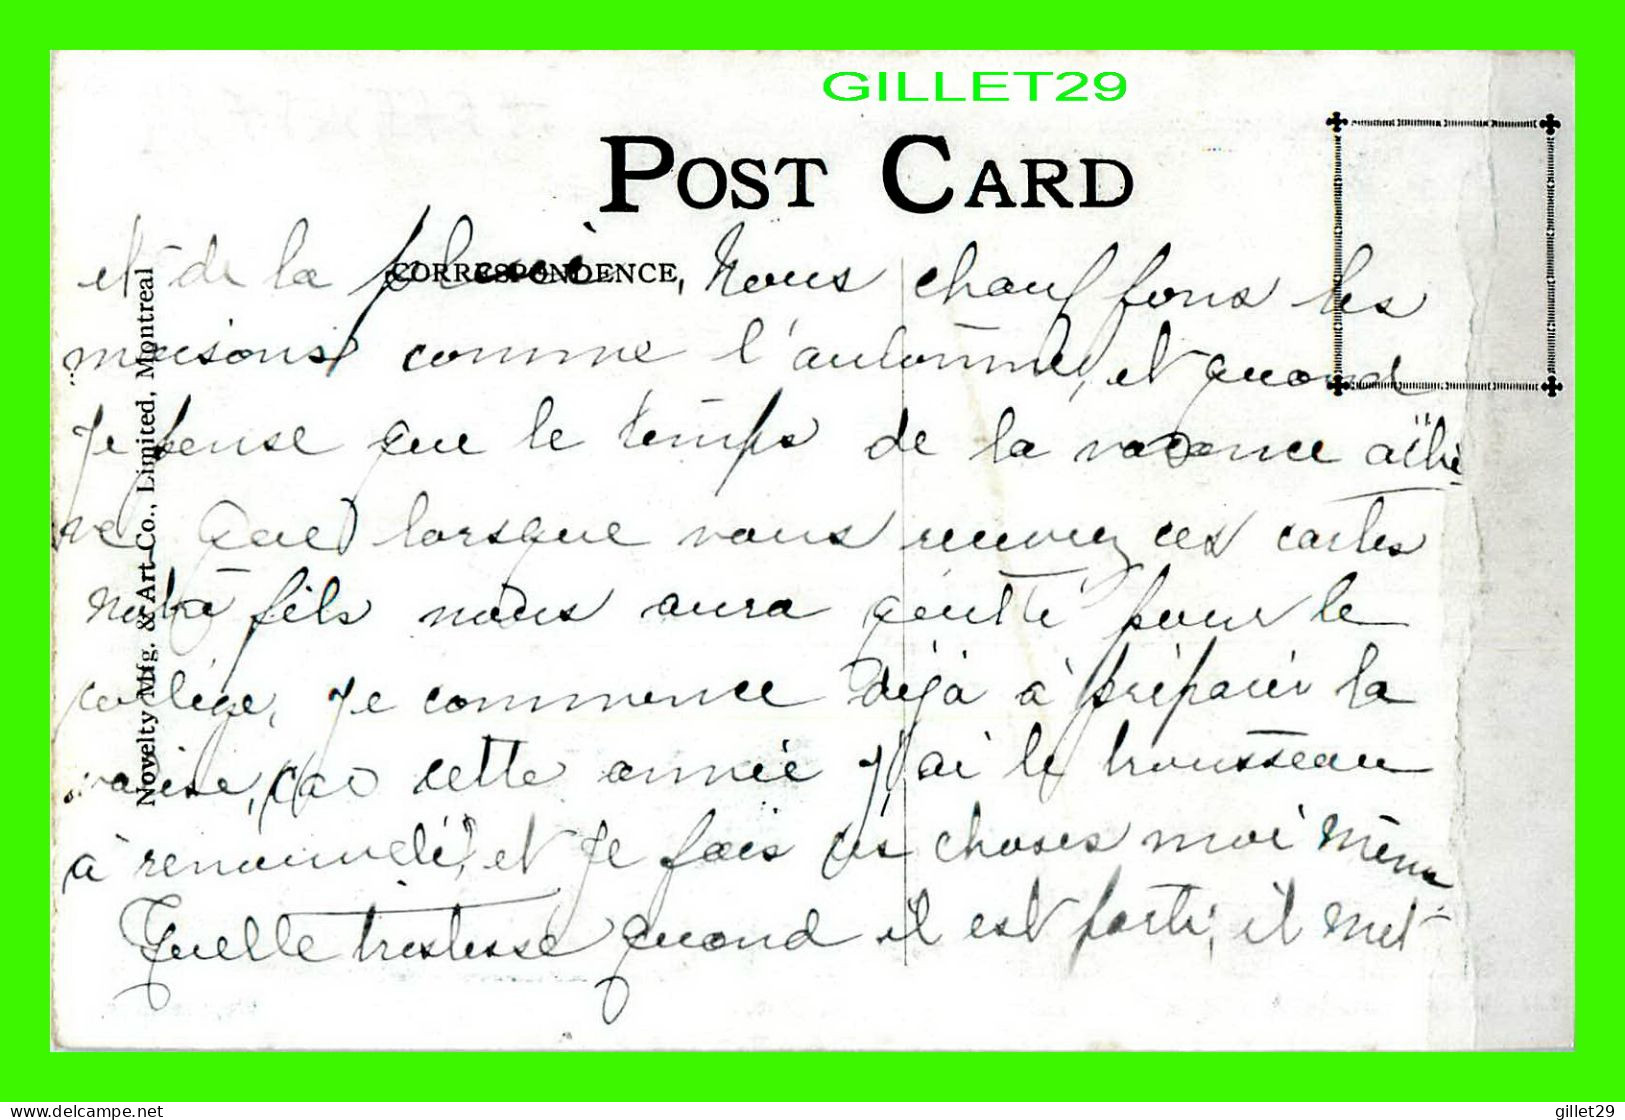 GILLET29
POST CARD
CORRESPONDENCE
Novelty Mfg. & Art Co., Limited, Montreal
et de la pluie, Nous chauffons les
maisons comme l'automne, et quand
Je pense que le temps de la vacance achè
ve. Que lorsque vous recevrez ces cartes
notre fils nous aura quitté pour le
collège, Je commence déjà à préparer la
valise, car cette année j'ai le trousseau
à renouveler, et Je fais ces choses moi même
Quelle tristesse quand il est parti, il met
delcampe.net
gillet29